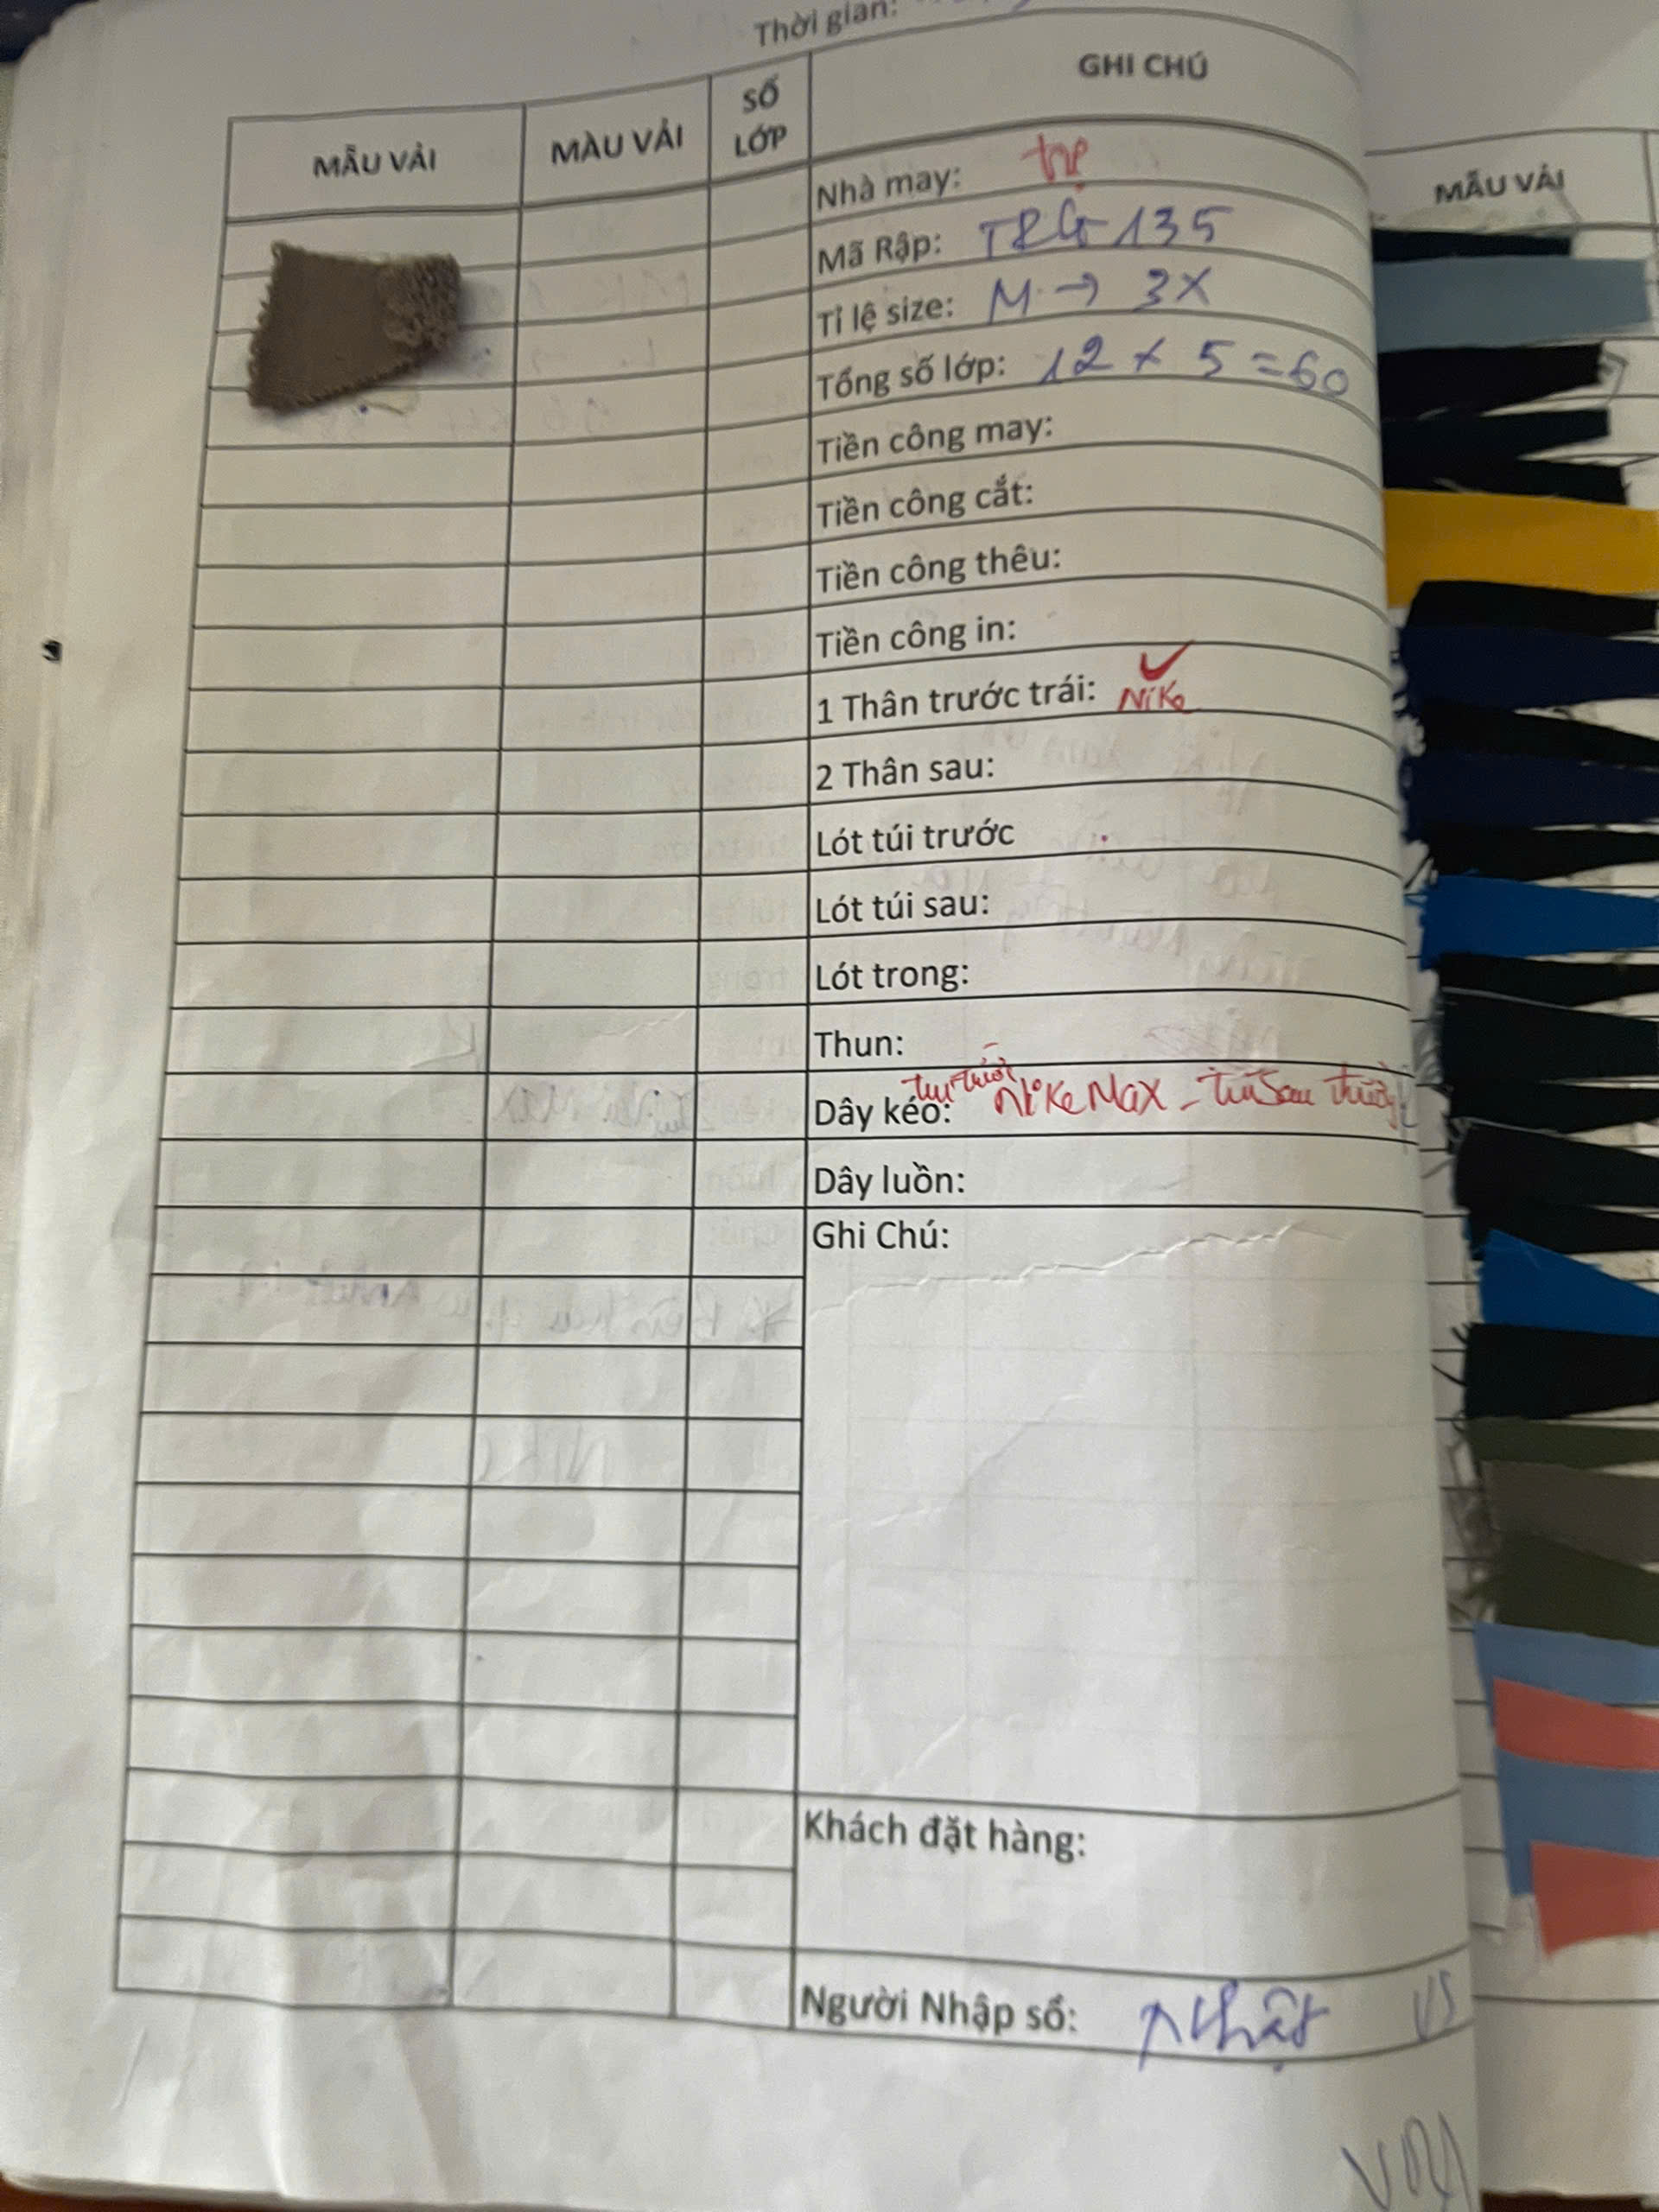 Thời gian:
MẪU VẢI
MÀU VẢI
SỐ LỚP
GHI CHÚ
Nhà may:
Mã Rập: TRG 135
Tỉ lệ size: M → 3X
Tổng số lớp: 12 x 5 = 60
Tiền công may:
Tiền công cắt:
Tiền công thêu:
Tiền công in:
1 Thân trước trái: Nike
2 Thân sau:
Lót túi trước
Lót túi sau:
Lót trong:
Thun:
Dây kéo: túi trước Nike Max - túi sau thường
Dây luồn:
Ghi Chú:
Khách đặt hàng:
Người Nhập sổ: Nhật
MẪU VẢI